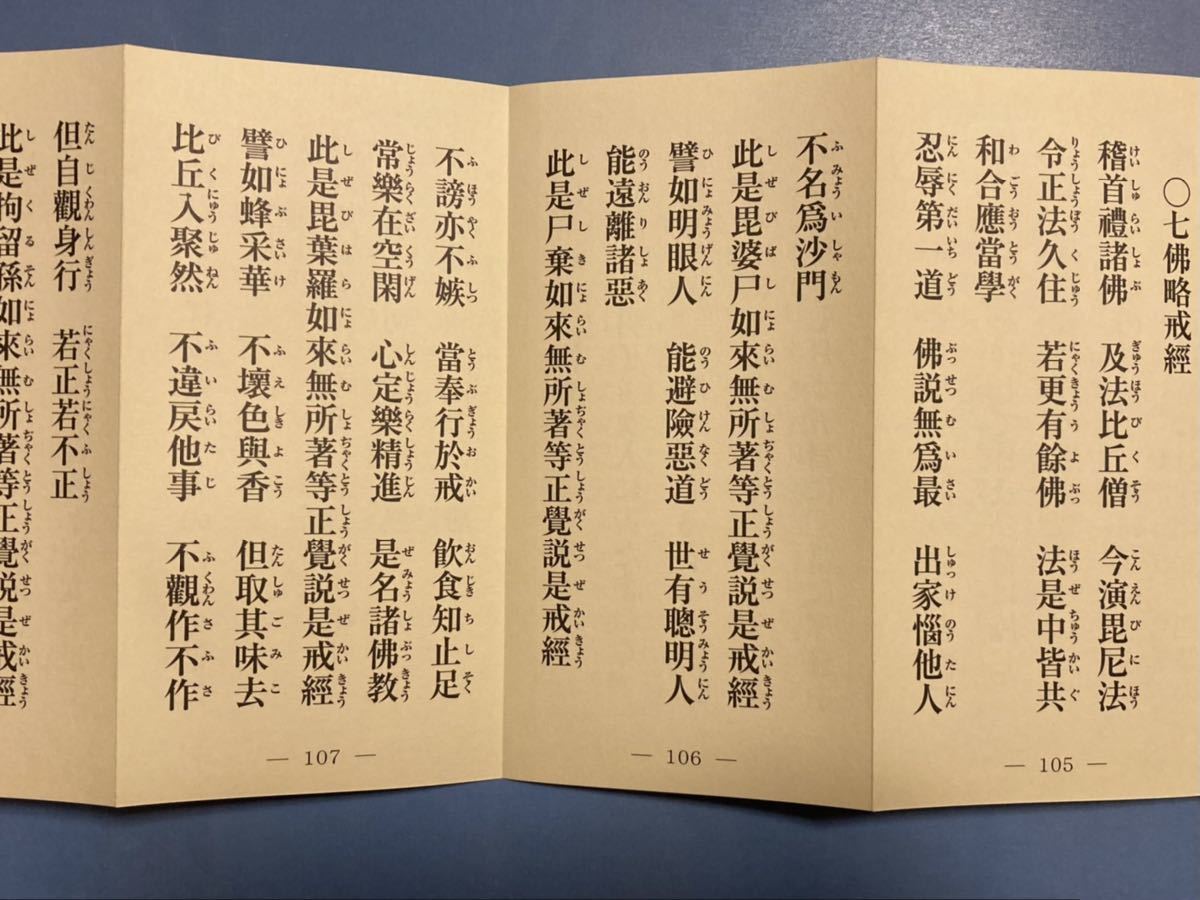 〇七佛略戒經
稽首禮諸佛　及法比丘僧　今演毘尼法
令正法久住　若更有餘佛　法是中皆共
和合應當學
忍辱第一道　佛説無爲最　出家惱他人
— 105 —
不名爲沙門
此是毘婆尸如來無所著等正覺説是戒經
譬如明眼人　能避險惡道　世有聰明人
能遠離諸惡
此是尸棄如來無所著等正覺説是戒經
— 106 —
不謗亦不嫉　當奉行於戒　飲食知止足
常樂在空閑　心定樂精進　是名諸佛教
此是毘葉羅如來無所著等正覺説是戒經
譬如蜂采華　不壞色與香　但取其味去
比丘入聚然　不違戻他事　不觀作不作
— 107 —
但自觀身行　若正若不正
此是拘留孫如來無所著等正覺説是戒經